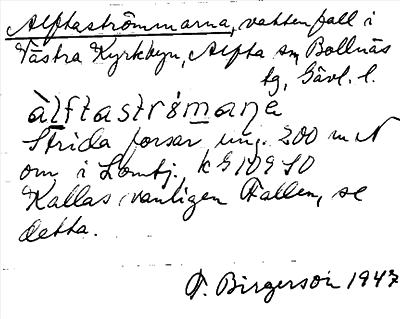 Alftaströmmarna, vattenfall i
Västra Kyrkbyn, Alfta sn, Bollnäs
tg, Gävl. l.
àlftaströ̀maṇa
Strida forsar ung. 200 m N
om i Lomtj. k G 109 SO
Kallas vanligen Fallen, se
detta.
F. Birgerson 1947